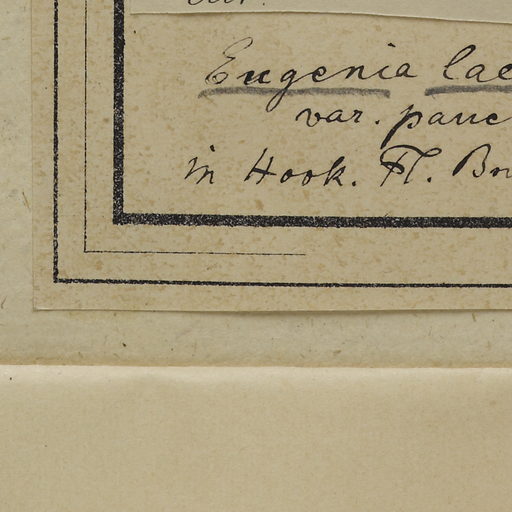 Eugenia lae
var. pauc
in Hook. Fl. Br